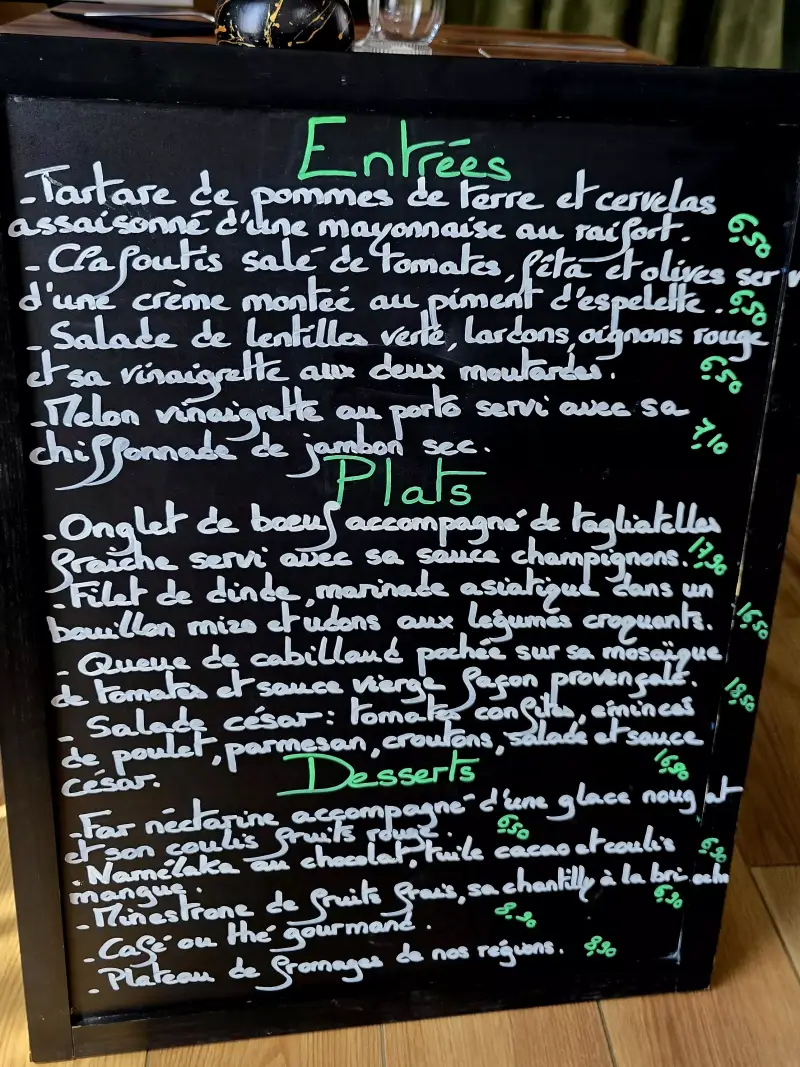 Entrées
- Tartare de pommes de terre et cervelas
assaisonné d'une mayonnaise au raifort. 6,50
- Clafoutis salé de tomates, fêta et olives serv
d'une crème montée au piment d'espelette. 6,50
- Salade de lentilles verte, lardons, oignons rouge
et sa vinaigrette aux deux moutardes. 6,50
- Melon vinaigrette au porto servi avec sa
chiffonnade de jambon sec. 7,10
Plats
- Onglet de bœuf accompagné de tagliatelles
fraîche servi avec sa sauce champignons. 17,90
- Filet de dinde, marinade asiatique dans un
bouillon miso et udons aux légumes croquants. 16,50
- Queue de cabillaud pochée sur sa mosaïque
de tomates et sauce vierge façon provençale. 18,50
- Salade césar: tomates confites, émincés
de poulet, parmesan, croutons, salade et sauce
césar. 16,90
Desserts
- Far nectarine accompagné d'une glace nougat
et son coulis fruits rouge. 6,50
- Namélaka au chocolat, tuile cacao et coulis
mangue. 6,90
- Minestrone de fruits frais, sa chantilly à la brioche 6,90
- Café ou thé gourmand. 8,90
- Plateau de fromages de nos régions. 8,90